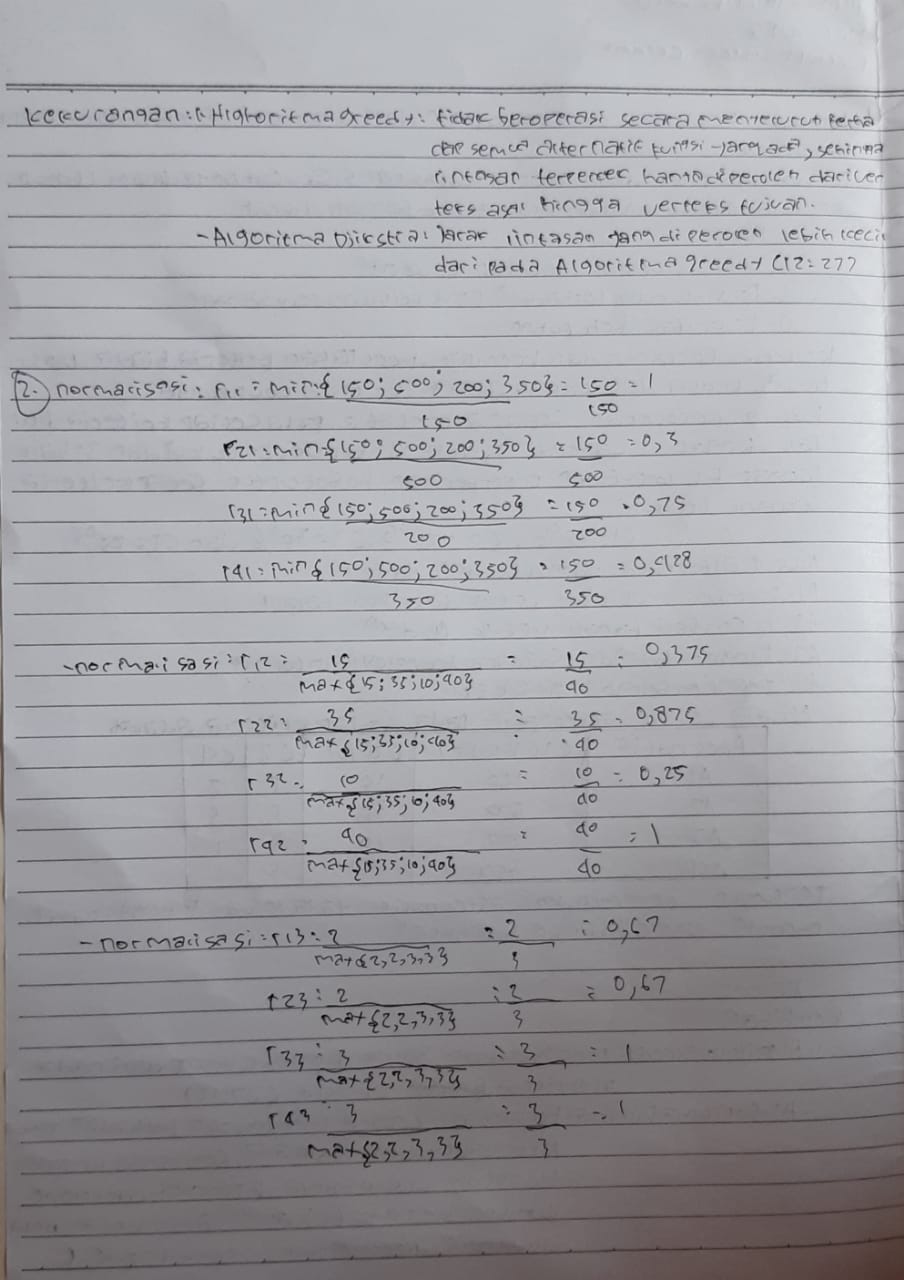 Kekurangan: Algoritma greedy: tidak beroperasi secara menyeluruh terha
dap semua alternatif fungsi yang ada, sehingga
lintasan terpendek hanya diperoleh dari ver
teks asal hingga verteks tujuan.
- Algoritma Djikstra: Jarak lintasan yang diperoleh lebih kecil
dari pada Algoritma greedy (12:27)
2. normalisasi: r11 = min{150; 500; 200; 350} = 150 = 1
150 150
r21 = min{150; 500; 200; 350} = 150 = 0,3
500 500
r31 = min{150; 500; 200; 350} = 150 = 0,75
200 200
r41 = min{150; 500; 200; 350} = 150 = 0,428
350 350
- normalisasi: r12 = 15 = 15 = 0,375
max{15; 35; 10; 40} 40
r22 = 35 = 35 = 0,875
max{15; 35; 10; 40} 40
r32 = 10 = 10 = 0,25
max{15; 35; 10; 40} 40
r42 = 40 = 40 = 1
max{15; 35; 10; 40} 40
- normalisasi: r13 = 2 = 2 = 0,67
max{2, 2, 3, 3} 3
r23 = 2 = 2 = 0,67
max{2, 2, 3, 3} 3
r33 = 3 = 3 = 1
max{2, 2, 3, 3} 3
r43 = 3 = 3 = 1
max{2, 2, 3, 3} 3